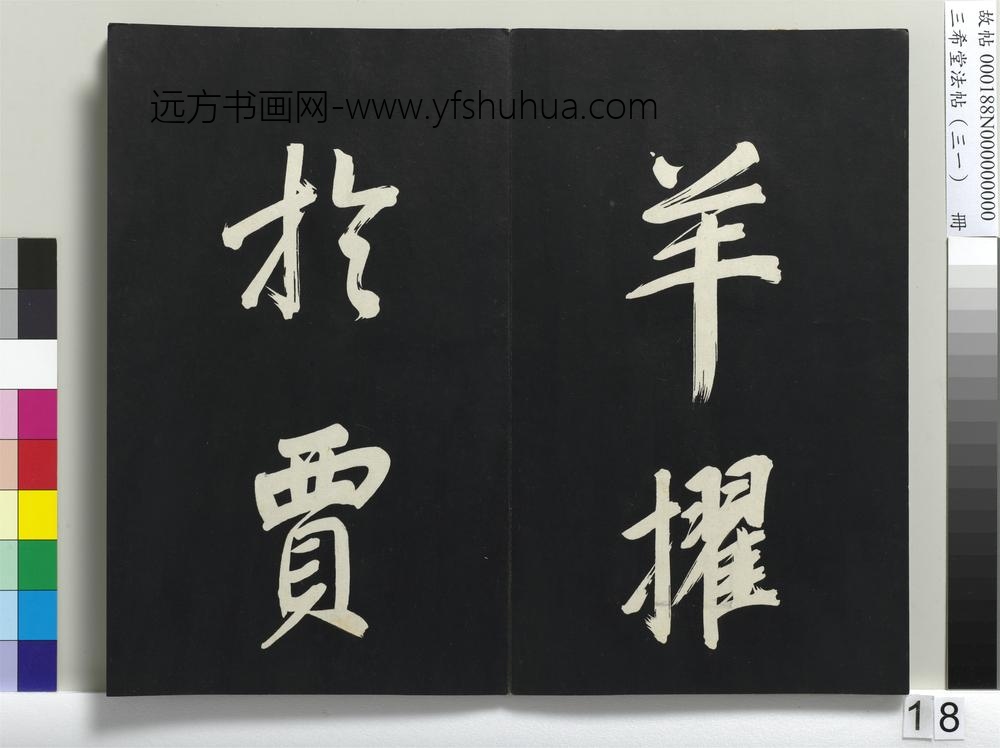 远方书画网-www.yfshuhua.com
羊擢
於賈
故帖 000188N000000000
三希堂法帖（三一） 冊
18